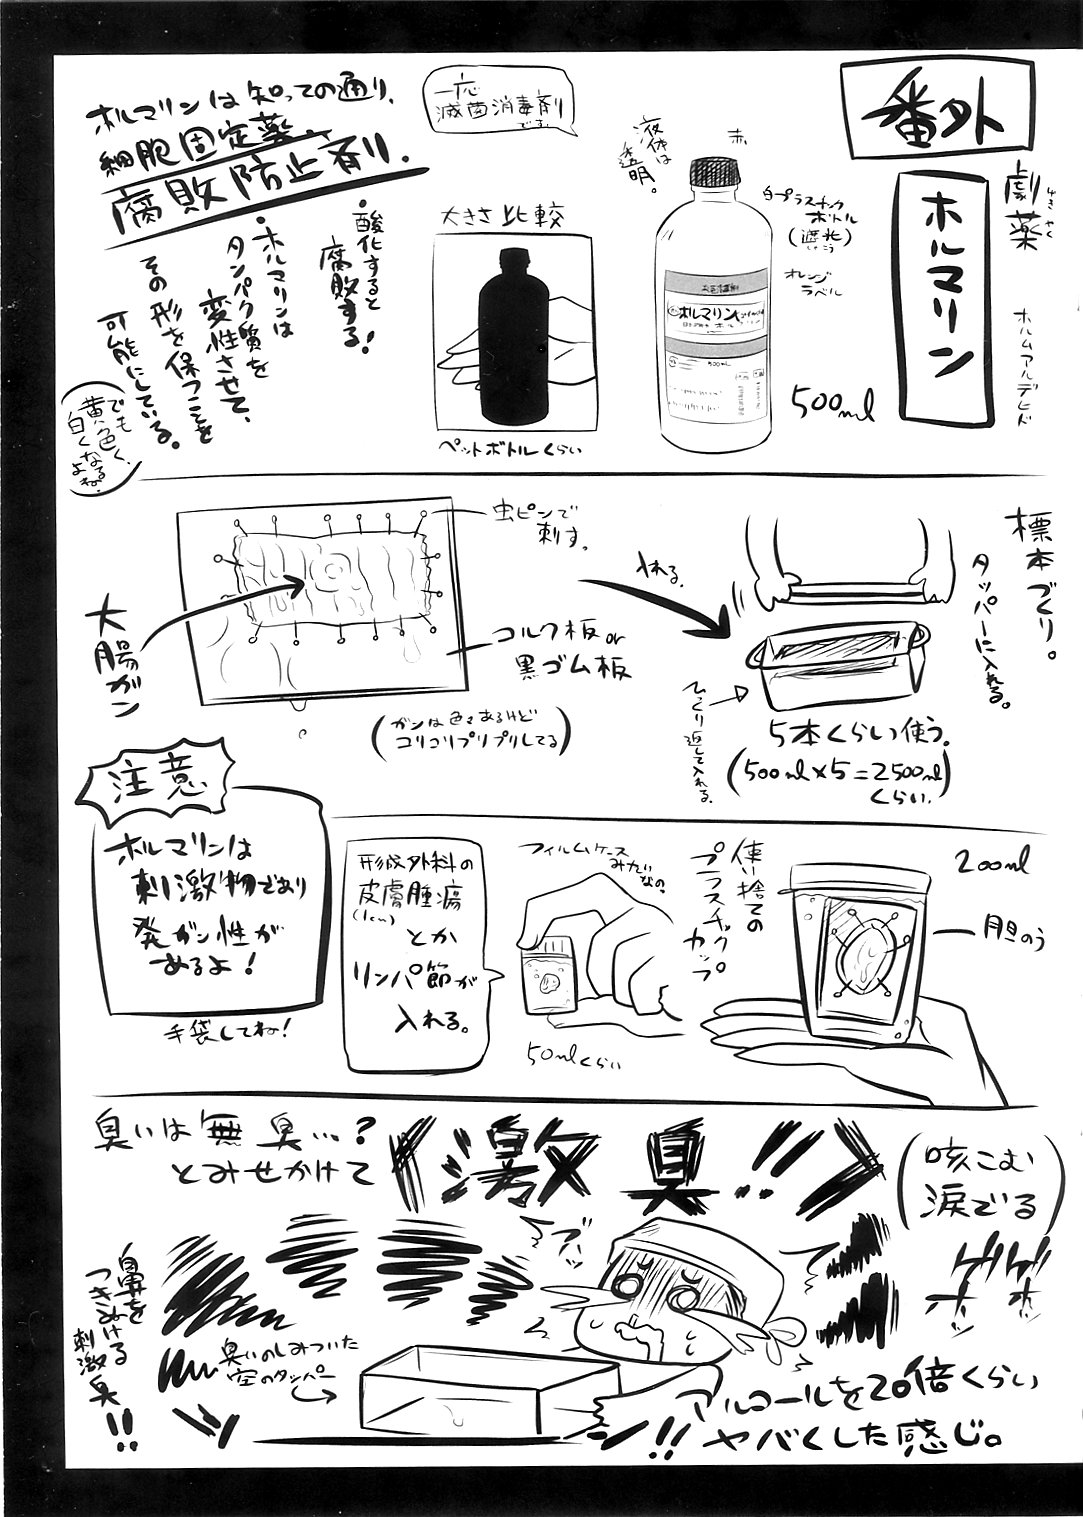 番外
劇薬
ゲキヤク
ホルマリン
ホルムアルデヒド
赤
液体は
透明。
白プラスチック
ボトル
(遮光)
しゃこう
オレンジ
ラベル
ホルマリン
500mL
500ml
一応
滅菌消毒剤
です。
大きさ比較
ペットボトルくらい
ホルマリンは知っての通り、
細胞固定薬
腐敗防止剤。
・酸化すると
腐敗する!
・ホルマリンは
タンパク質を
変性させて、
その形を保つことを
可能にしている。
でも
黄色く、
白くなる
よね。
標本づくり。
タッパーに入れる。
入れる。
虫ピンで
刺す。
大腸ガン
コルク板or
黒ゴム板
(ガンは色々あるけど
コリコリプリプリしてる)
ひっくり返して入れる。
5本くらい使う。
(500ml×5=2500ml)
くらい。
注意
ホルマリンは
刺激物であり
発ガン性が
あるよ!
手袋してね!
200ml
胆のう
使い捨ての
プラスチック
カップ
フィルムケース
みたいなの。
50mlくらい
形成外科の
皮膚腫瘍
(1cm)
とか
リンパ節が
入れる。
臭いは無臭…?
とみせかけて
激臭!!
(咳こむ
涙でる)
ゲホッ
ゲホッ
ブッ
鼻を
つきぬける
刺激臭!!
臭いのしみついた
空のタッパー
アルコールを20倍くらい
ヤバくした感じ。